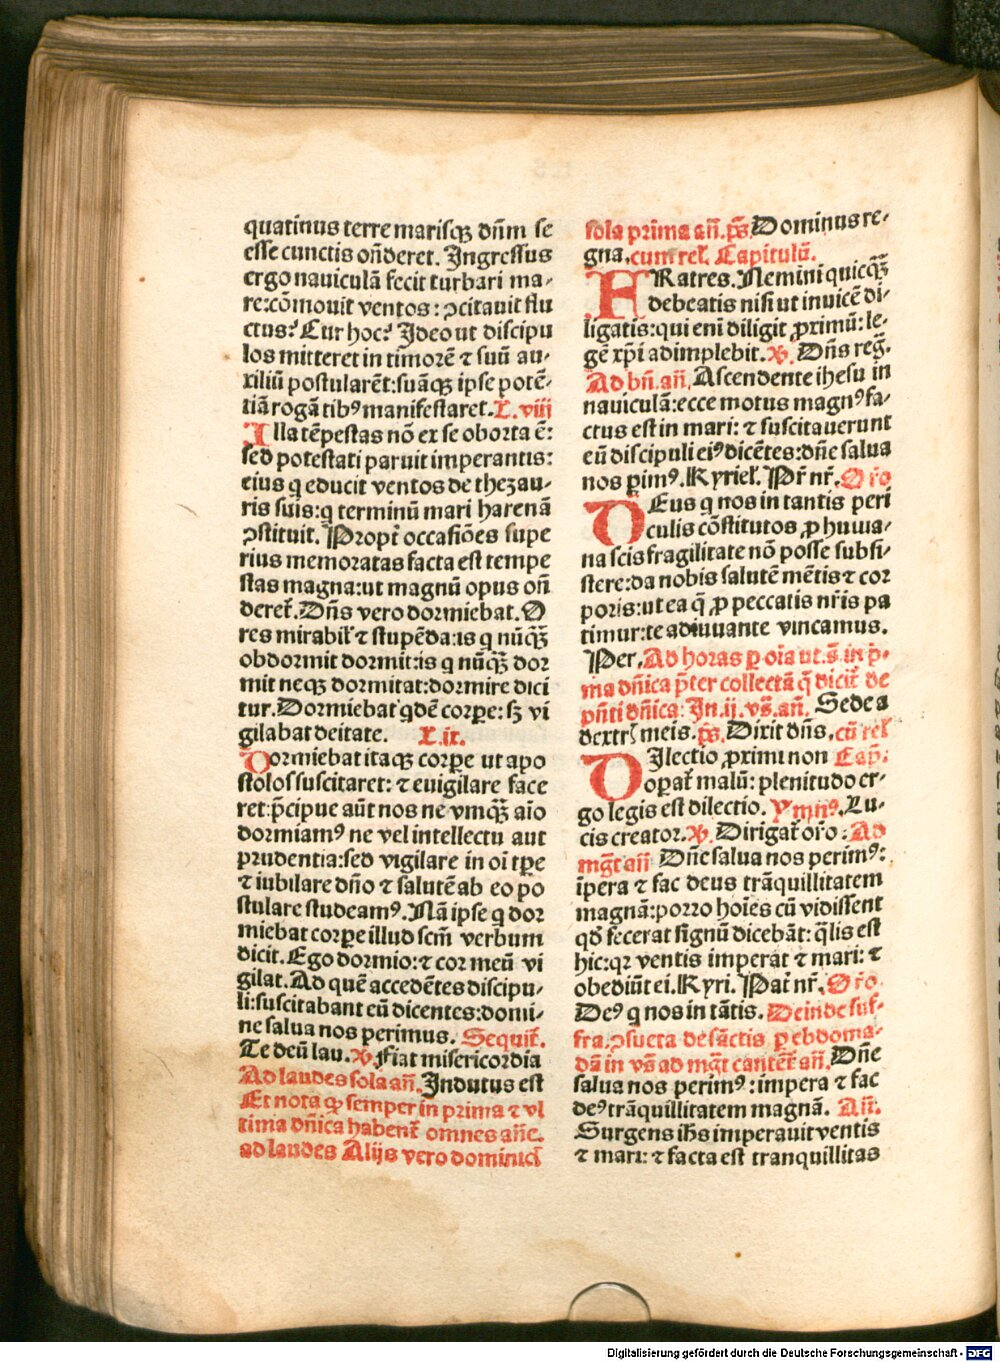 quatinus terre marisqꝫ dn̄m se
esse cunctis on̄deret. Ingressus
ergo nauiculā fecit turbari ma⸗
re:cōmouit ventos: ↄcitauit flu
ctus? Cur hoc? Ideo ut discipu
los mitteret in timorē ⁊ suū au⸗
xiliū postularēt:suāqꝫ ipse potē⸗
tiā rogātibꝰ manifestaret. L. viii
Illa tēpestas nō ex se oborta ē:
sed potestati paruit imperantis:
eius q educit ventos de thezau⸗
ris suis:q terminū mari harenā
ↄstituit. Propt̄ occasiōes supe
rius memoratas facta est tempe
stas magna:ut magnū opus on̄
deret᷑. Dn̄s vero dormiebat. O
res mirabil̄ ⁊ stupēda:is q nūqꝫ̄
obdormit dormit:is q nūqꝫ̄ dor
mit neqꝫ dormitat:dormire dici
tur. Dormiebat qdē corꝑe: sꝫ vi
gilabat deitate. L. ix.
Dormiebat itaqꝫ corꝑe ut apo
stolos suscitaret: ⁊ euigilare face
ret:p̄cipue aūt nos ne vmqꝫ̄ aīo
dormiamꝰ ne vel intellectu aut
prudentia:sed vigilare in oī tꝑe
⁊ iubilare dn̄o ⁊ salutē ab eo po
stulare studeamꝰ. Nā ipse q dor
miebat corꝑe illud scm̄ verbum
dicit. Ego dormio:⁊ cor meū vi
gilat. Ad quē accedētes discipu⸗
li:suscitabant eū dicentes:domi⸗
ne salua nos perimus. Sequit᷑.
Te deū lau. ꝟ. Fiat misericordia
Ad laudes sola an̄. Indutus est
Et nota ꝙ semper in prima ⁊ vl
tima dn̄ica habent᷑ omnes an̄e.
ad laudes Alijs vero dominici
sola prima an̄. ps̄. Dominus re⸗
gna. cum rel̄. Capitulū.
FRatres. Nemini quicqꝫ̄
debeatis nisi ut inuicē di⸗
ligatis:qui eni diligit ꝓximū: le⸗
gē xp̄i adimplebit. ꝟ. Dn̄s reḡ.
Ad bn̄. an̄. Ascendente ihesu in
nauiculā:ecce motus magnꝰ fa⸗
ctus est in mari: ⁊ suscitauerunt
eū discipuli eiꝰ dicētes:dn̄e salua
nos ꝑimꝰ. Kyriel̄. Pr̄ nr̄. Or̄o
DEus q nos in tantis peri
culis cōstitutos ꝓ huma⸗
na scis fragilitate nō posse subsi⸗
stere:da nobis salutē mētis ⁊ cor
poris:ut ea q̄ ꝓ peccatis nr̄is pa
timur:te adiuuante vincamus.
Per. Ad horas ꝑ oīa ut.s̄.in p⸗
ma dn̄ica p̄ter collectā q̄ dicit᷑ de
pn̄ti dn̄ica: In.ij.vs̄.an̄. Sede a
dextr̄ meis. ps̄. Dixit dn̄s. cū rel̄
DIlectio ꝓximi non Cap̄.
oꝑat᷑ malū: plenitudo er⸗
go legis est dilectio. Ymnꝰ. Lu⸗
cis creator. ꝟ. Dirigat᷑ or̄o: Ad
mgt̄ an̄ Dn̄e salua nos perimꝰ:
īpera ⁊ fac deus trāquillitatem
magnā:porro hoīes cū vidissent
qd̄ fecerat signū dicebāt: q̄lis est
hic:qꝛ ventis imperat ⁊ mari: ⁊
obediūt ei. Kyri. Pat᷑ nr̄. Or̄o
Deꝰ q nos in tātis. Deinde suf⸗
fra. ↄsueta de sāctis ꝑ ebdoma⸗
dā in vs̄ ad mgt̄ cantet᷑ an̄. Dn̄e
salua nos perimꝰ: impera ⁊ fac
deꝰ trāquillitatem magnā. An̄.
Surgens ih̄s imperauit ventis
⁊ mari: ⁊ facta est tranquillitas
Digitalisierung gefördert durch die Deutsche Forschungsgemeinschaft - DFG